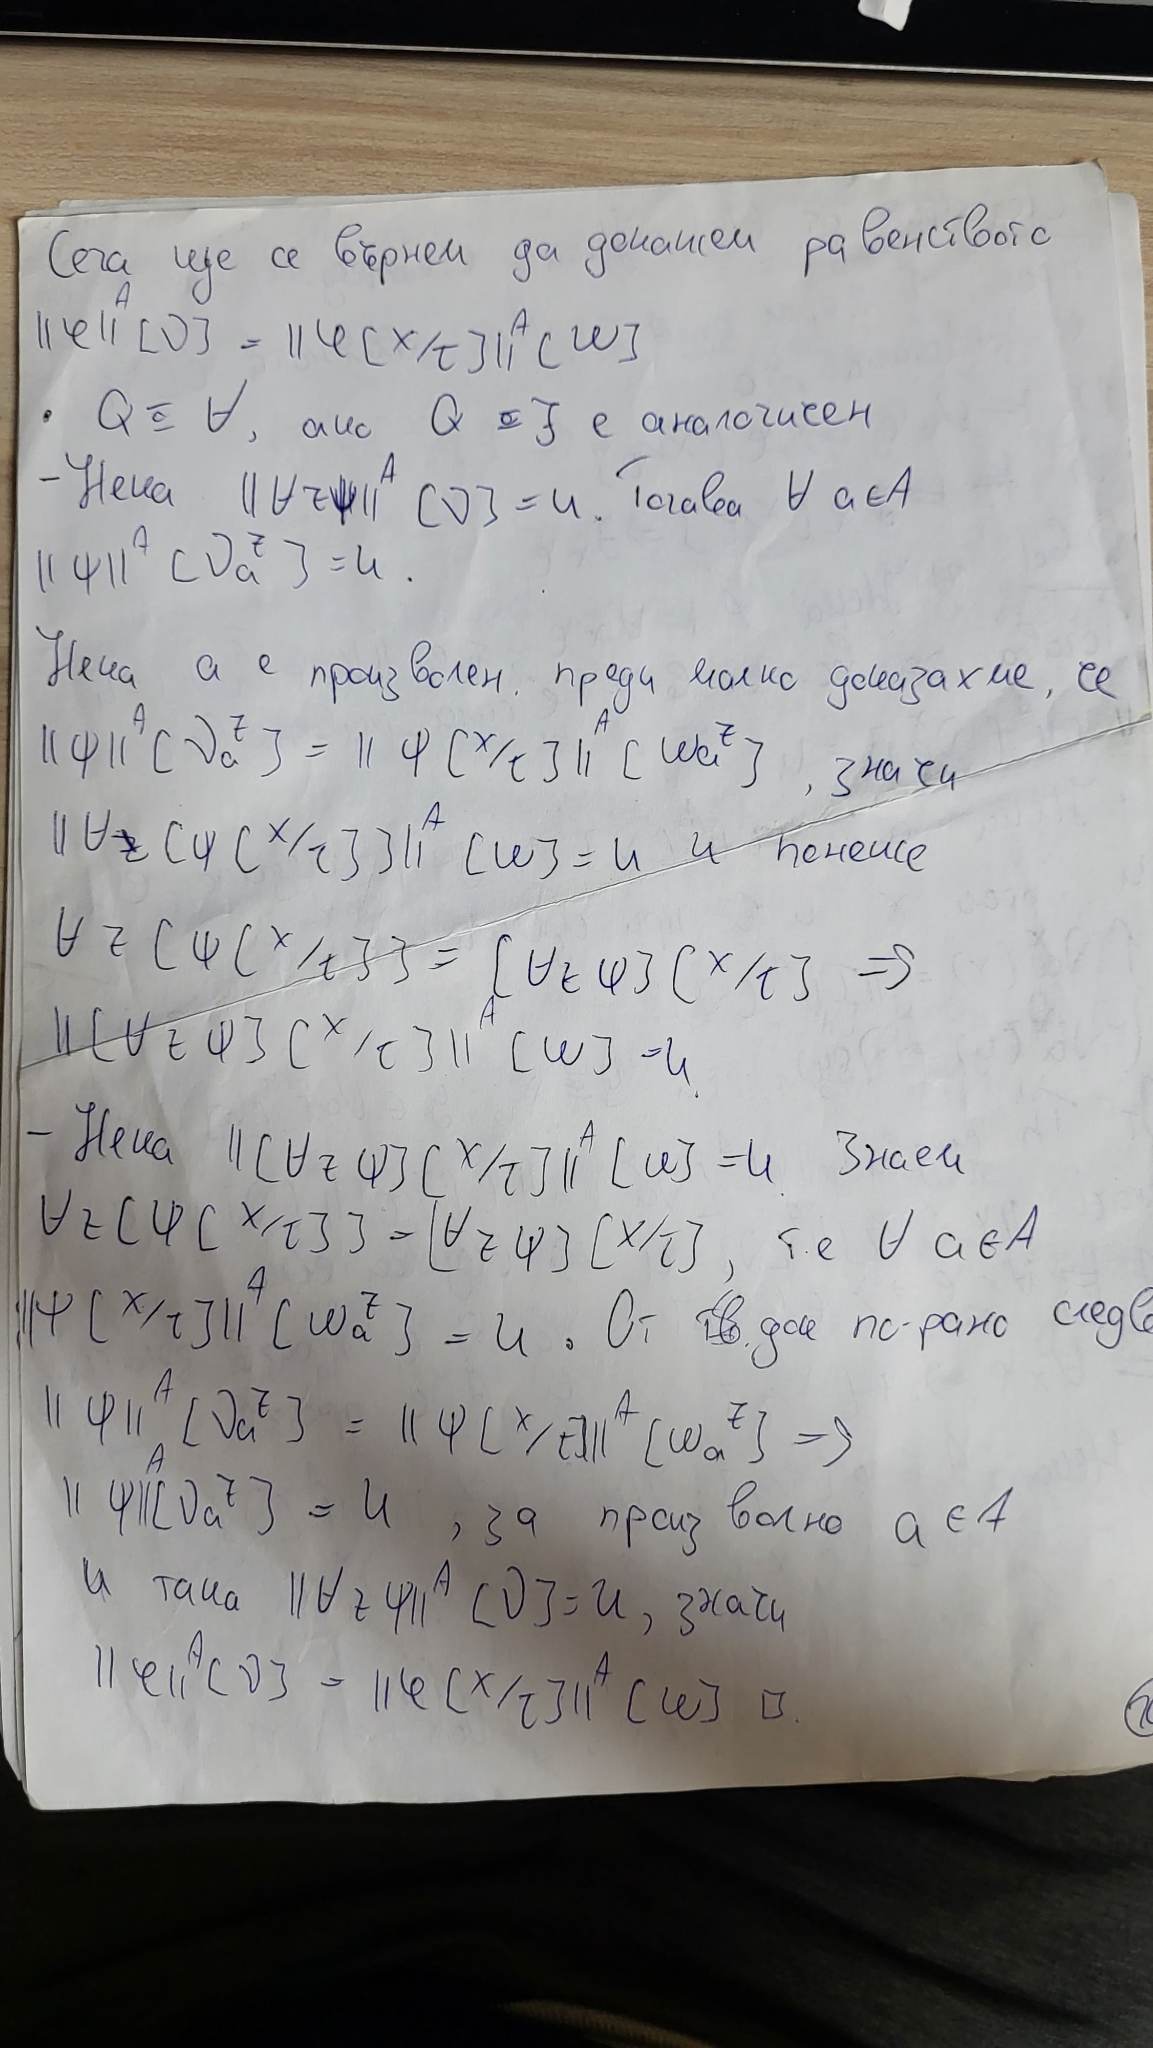 Сега ще се върнем да докажем равенството
||φ||^A [ν] = ||φ[x/τ]||^A [w]
• Q ≡ ∀, ако Q ≡ ∃ е аналогичен
- Нека ||∀zψ||^A [ν] = и. Тогава ∀ a∈A
||ψ||^A [ν_a^z] = и.
Нека a е произволен. преди малко доказахме, че
||ψ||^A [ν_a^z] = ||ψ[x/τ]||^A [w_a^z], значи
||∀z[ψ[x/τ]]||^A [w] = и и понеже
∀z[ψ[x/τ]] = [∀zψ][x/τ] ⇒
||[∀zψ][x/τ]||^A [w] = и.
- Нека ||[∀zψ][x/τ]||^A [w] = и. Знаем
∀z[ψ[x/τ]] = [∀zψ][x/τ], т.е ∀ a∈A
||ψ[x/τ]||^A [w_a^z] = и. От по-рано
||ψ||^A [ν_a^z] = ||ψ[x/τ]||^A [w_a^z] ⇒
||ψ||^A [ν_a^z] = и, за произволно a∈A
и така ||∀zψ||^A [ν] = и, значи
||φ||^A [ν] = ||φ[x/τ]||^A [w] □.